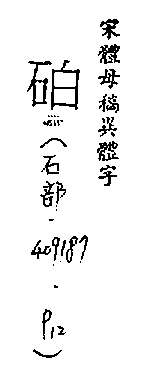 宋體母稿異體字
䂖
(石部.409187.P12)